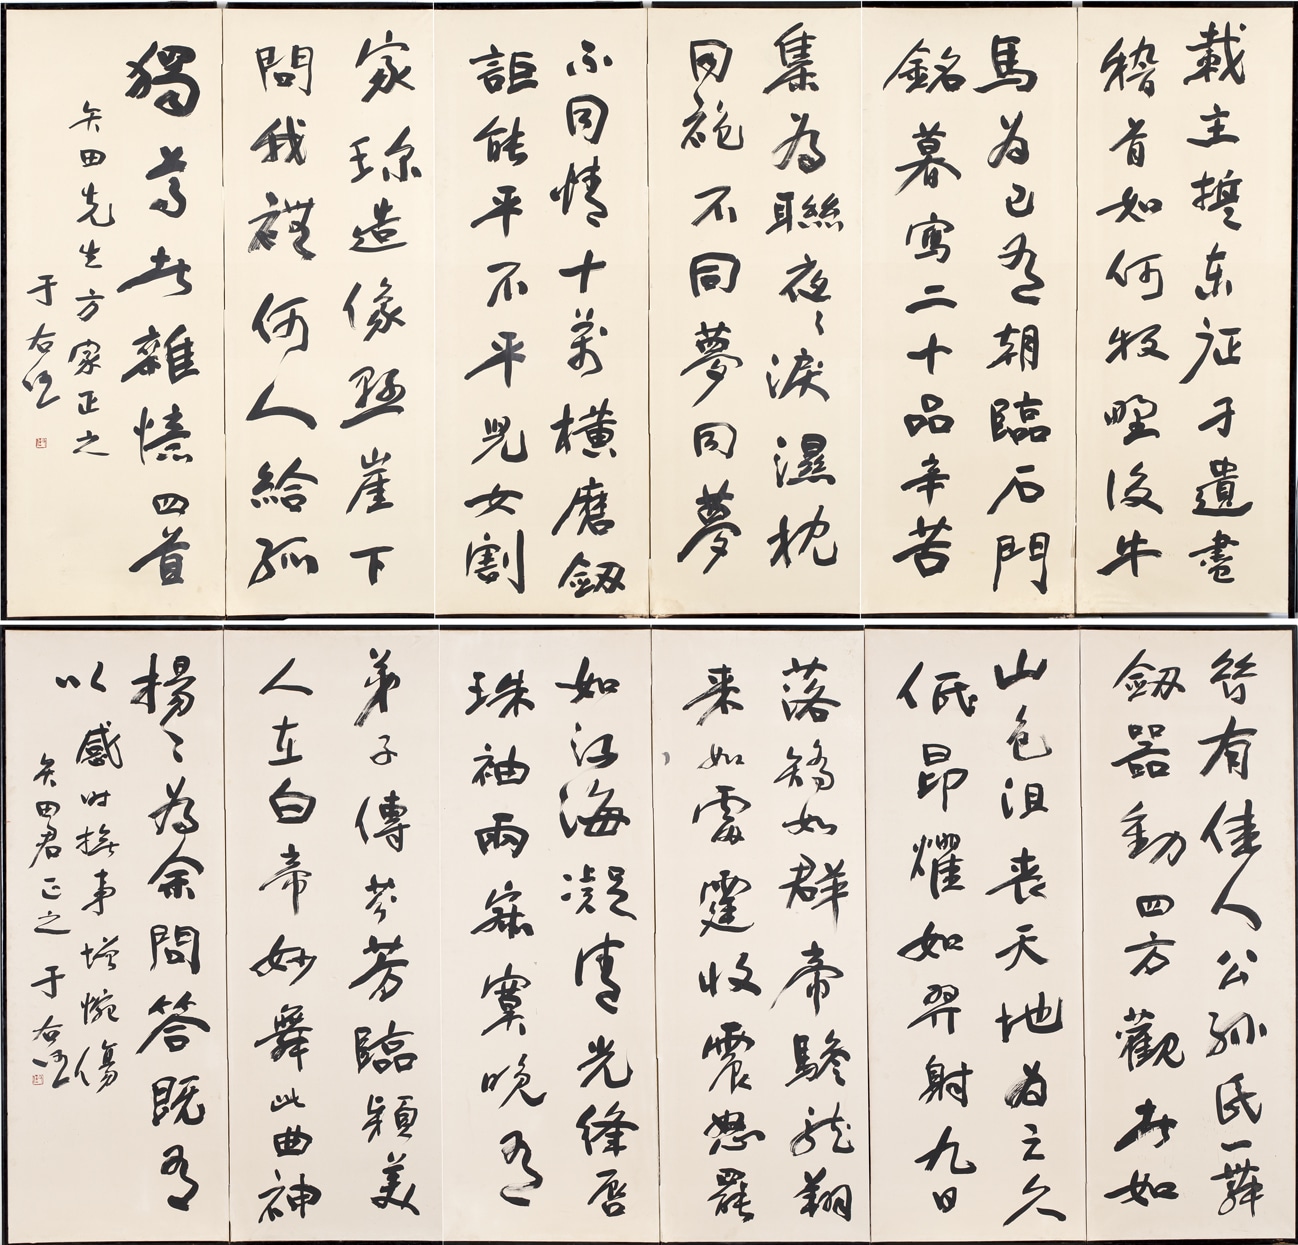 載主东征孑遺盡
稽首如何牧野後牛
馬為己有朝臨石門
銘暮寫二十品辛苦
集為聯夜〻淚濕枕
同袍不同夢同夢
不同情十萬橫磨劒
詎能平不平兒女割
家珍造像懸崖下
問我禮何人給孤
獨尊者雜憶四首
矢田先生方家正之
于右任
昔有佳人公孫氏一舞
劒器動四方觀者如
山色沮喪天地為之久
低昂燿如羿射九日
落矯如群帝驂龍翔
来如雷霆收震怒罷
如江海凝清光絳唇
珠袖兩寂寞晚有
弟子傳芬芳臨潁美
人在白帝妙舞此曲神
揚〻為余問答既有
以感時撫事增惋傷
矢田君正之 于右任